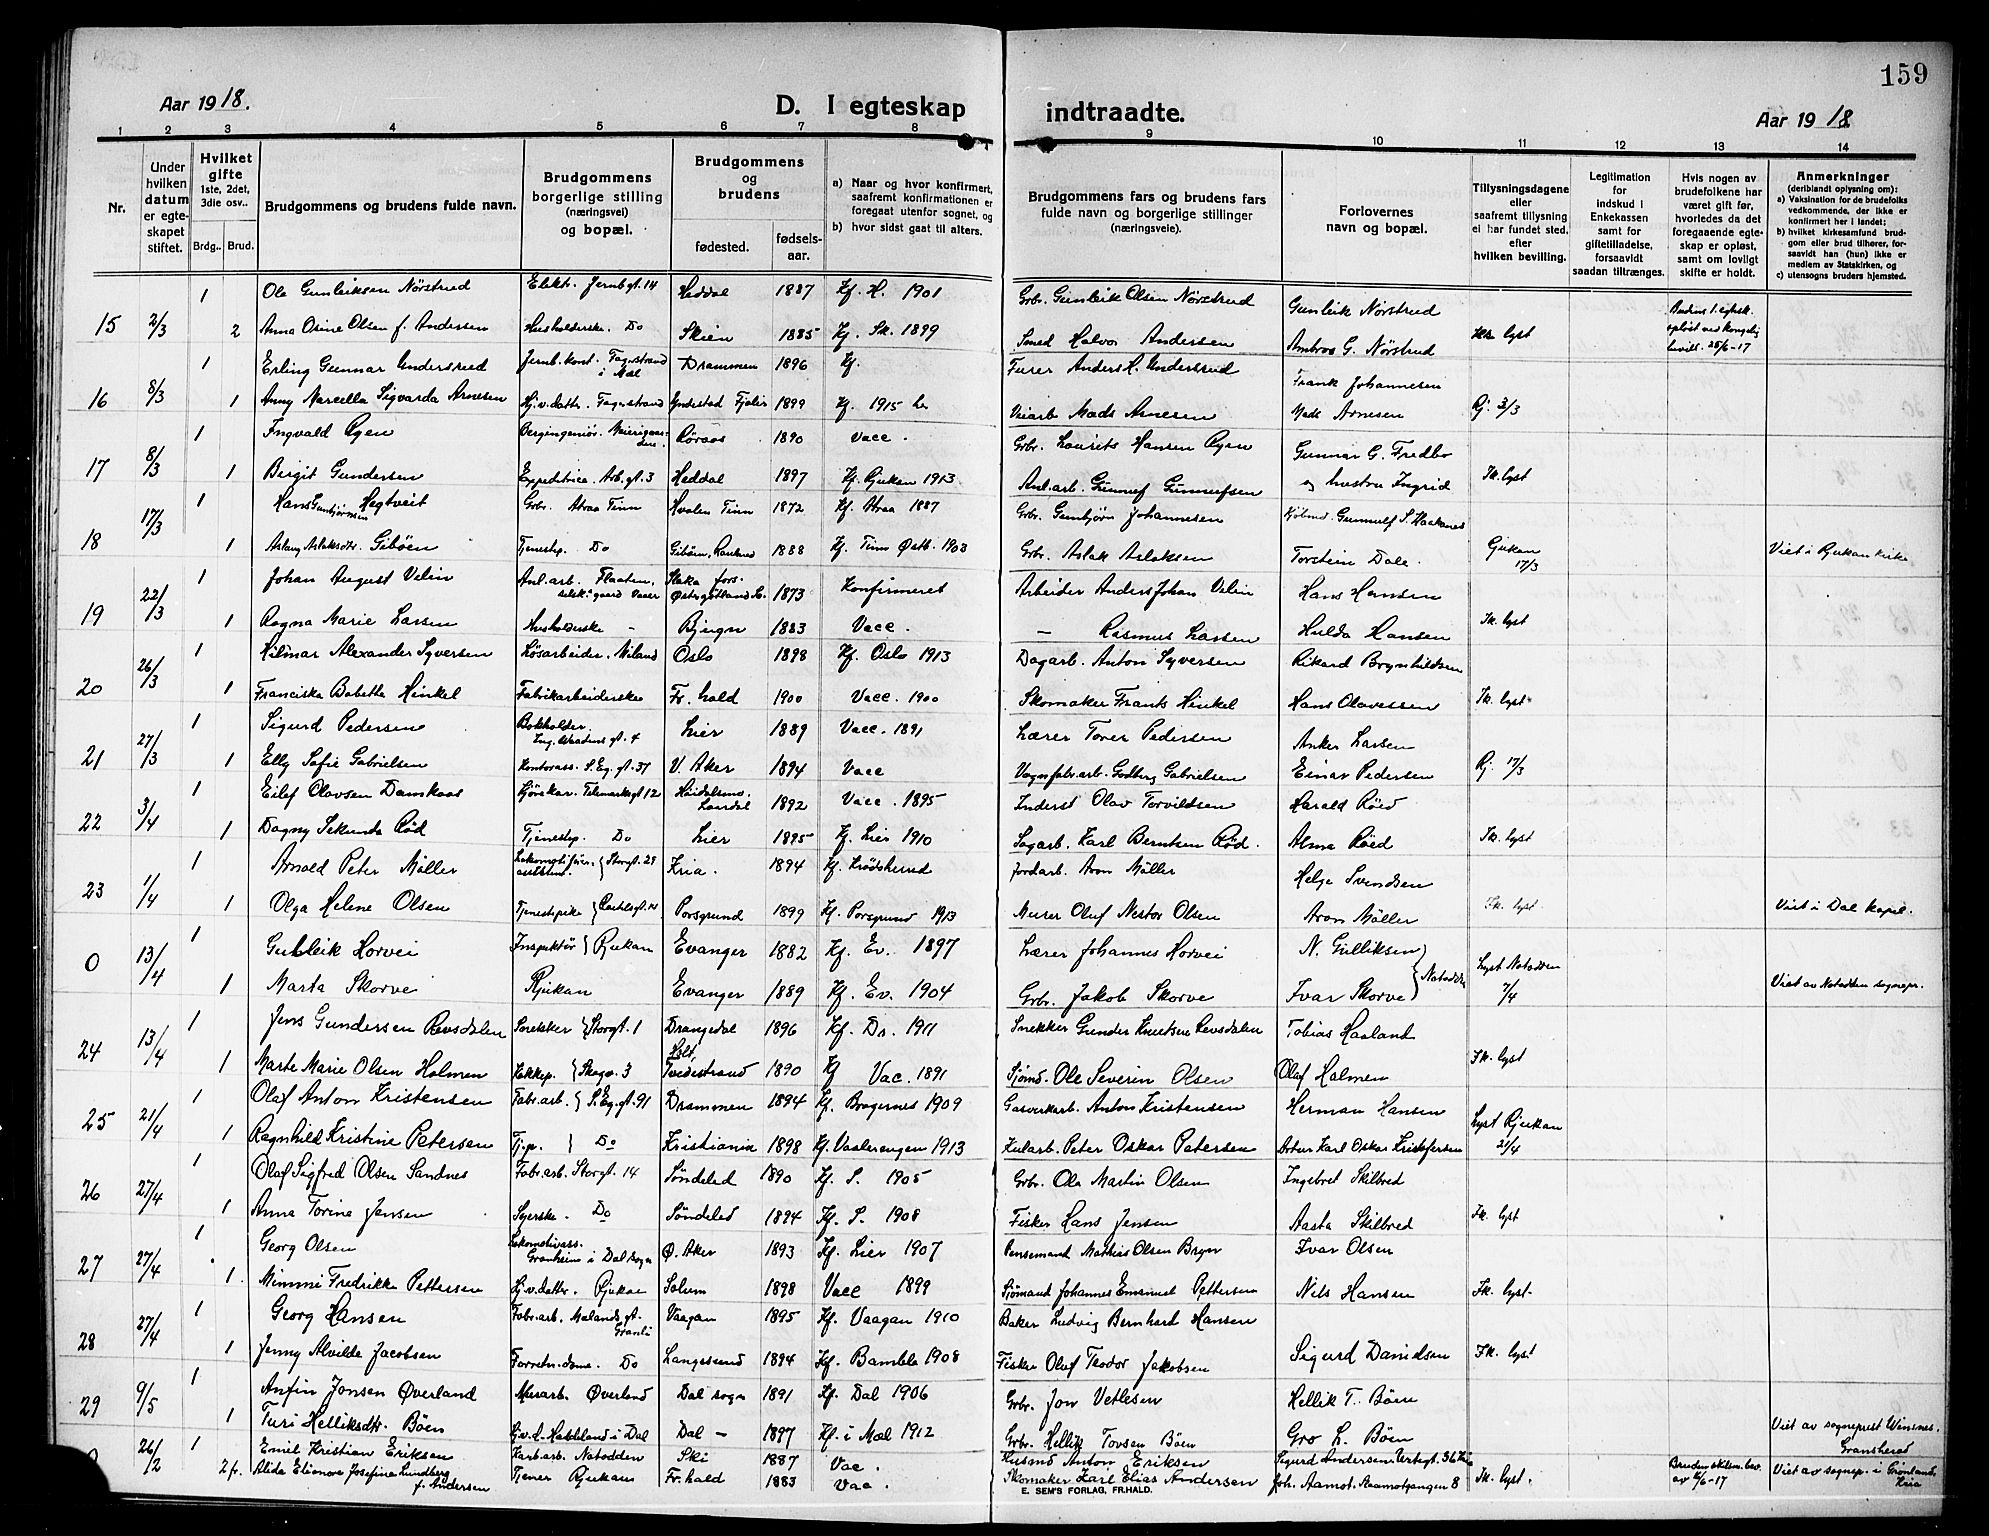 159
Aar 1918.
D. I egteskap indtraadte.
Aar 1918
1 2 3 4 5 6 7 8 9 10 11 12 13 14
Nr.
Under hvilken datum er egteskapet stiftet.
Hvilket gifte 1ste, 2det, 3die osv..
Brdg.. Brud.
Brudgommens og brudens fulde navn.
Brudgommens borgerlige stilling (næringsvei) og bopæl.
Brudgommens og brudens
fødested. fødselsaar.
a) Naar og hvor konfirmert, saafremt konfirmationen er foregaat utenfor sognet, og
b) hvor sidst gaat til alters.
Brudgommens fars og brudens fars fulde navn og borgerlige stillinger (næringsveie).
Forlovernes navn og bopæl.
Tillysningsdagene eller saafremt tillysning ei har fundet sted, efter hvilken bevilling.
Legitimation for indskud i Enkekassen samt for giftetilladelse, forsaavidt saadan tiltrænges.
Hvis nogen av brudefolkene har været gift før, hvorledes da det foregaaende egteskap er opløst, samt om lovligt skifte er holdt.
Anmerkninger (deriblandt oplysning om):
a) Vaksination for de brudefolks vedkommende, der ikke er konfirmert her i landet;
b) hvilket kirkesamfund brudgom eller brud tilhører, forsaavidt han (hun) ikke er medlem av Statskirken, og
c) utensogns bruders hjemsted.
1 Ole Gunleiksen Nørstrud Elekt. Jernbgt. 14 Heddal 1887 Kf. H. 1901 Grb. Gunleik Olsen Nørstrud Gunleik Nørstrud
15 2/3 2 Anna Osine Olsen f. Andersen Husholderske. Do Skien 1885 Kf. Sk. 1899 Smed Halvor Andersen Ambros G. Nørstrud lyst Brudens 1. egtsk. opløst ved kongelig bevill. 25/6-17
1 Erling Gunnar Undersrud Jernb.konst. Fagerstrand i Mæl Drammen 1896 Kf. Furer Anders H. Undersrud Frank Johannesen
16 8/3 1 Anny Narcilla Sigvarda Arnesen Hj.v.datter. Fagerstrand 1899 Kf. 1915 her Veiarb Mads Arnesen Mads Arnesen Rj. 3/3
1 Ingvald Ryen Bergingeniør. Røraas 1890 Vacc. Grb. Laurits Hansen Ryen Gunnar G. Fredbo
17 8/3 1 Birgit Gundersen Expeditrice. Arb.gt. 3 Heddal 1897 Kf. Rjukan 1913 Anl.arb. Gunnuf Gunnufsen og hustru Ingrid Fk. lyst
1 Hans Gunbjørnsen Hegtveit Grb. Atraa Tinn Hvalen Tinn 1872 Kf. Atraa 1887 Grb. Gunbjørn Johannesen Gunnulf S. Haakanes
18 17/3 1 Aslaug Aslaksdtr. Gibøen Tjenestep. Do 1888 Kf. Tinn Østb. 1903 Grb. Aslak Aslaksen Torstein Dale. Rjukan 17/3 Viet i Rjukan kirke
1 Johan August Velin Anl.arb. Flaaten Østergötland 1873 Konfirmeret Arbeider Anders Johan Velin Hans Hansen
19 22/3 1 Ragna Marie Larsen Husholderske - Bjugn 1883 Vacc. - Rasmus Larsen Hulda Hansen Fk. lyst
1 Hilmar Alexander Syversen Løsarbeider. Oslo 1898 Kf. Oslo 1913 Dagarb. Anton Syversen Rikard Brynhildsen
20 26/3 1 Franciska Babette Hinkel Fabrikarbeiderske Fr. hald 1900 Vacc. 1900 Skomaker Frants Hinkel Hans Olavessen Fk. lyst
1 Sigurd Pedersen Bokholder. Lier 1889 Vacc. 1891 Lærer Torer Pedersen Anker Larsen
21 27/3 1 Elly Sofie Gabrielsen Kontorass. S. Eg. gt. 37 V. Aker 1894 Vacc Vognfabr.arb. Godberg Gabrielsen Einar Pedersen Rj. 17/3
1 Eilef Olavsen Damkaas Telemarksgt 12 Laardal 1892 Vacc. 1895 Inderst Olav Torvildsen Harald Røed
22 3/4 1 Dagny Sekunta Rød Tjenestep. Do Lier 1895 Kf. Lier 1910 Sagarb. Karl Berntsen Rød. Alma Røed Fk. lyst
1 Arnold Peter Møller Storgt. 29 Kria. 1894 Kf. Krødsherred Jordarb. Aron Møller Helge Svendsen
23 1/4 1 Olga Helene Olsen Tjenestepike Porsgrund 1899 Kf. Porsgrund 1913 Murer Oluf Nestor Olsen Aron Møller Fk. lyst Viet i Dal kapel.
1 Gulleik Horvei Inspektør Rjukan Evanger 1882 Kf. Ev. 1897 Lærer Johannes Horvei N. Gulliksen
0 13/4 1 Marta Skorve Rjukan Evanger 1889 Kf. Ev. 1904 Grb. Jakob Skorve Ivar Skorve Notodden Lyst Notodden 7/4 Viet av Notodden sognepr.
1 Jens Gundersen Revsdalen Snekker Storgt. 1 Drangedal 1896 Kf. Dr. 1911 Snekker Gunder Knutsen Revsdalen Tobias Haaland
24 13/4 1 Marte Marie Olsen Holmen Kokkep. Skogv. 3 Holt, Tvedestrand 1890 Kf Vac. 1891 Sjømd. Ole Severin Olsen Olaf Holmen Fk. lyst
1 Olaf Anton Kristensen Fabr.arb. S. Eg. gt. 91 Drammen 1894 Kf. Bragernes 1909 Gasverkarb. Anton Kristensen Herman Hansen
25 21/4 1 Ragnhild Kristine Petersen Tj.p. Do Kristiania 1898 Kf. Vaalerengen 1913 Kularb. Peter Oskar Petersen Artur Karl Oskar Kristofersen Lyst Rjukan 21/4
1 Olaf Sigfred Olsen Sandnes Fabr.arb. Storgt. 14 Søndeled 1890 Kf. S. 1905 Grb. Ole Martin Olsen Ingebret Skilbred
26 27/4 1 Anna Torine Jensen Syerske. Do Søndeled 1894 Kf. S. 1908 Fisker Hans Jensen Aasta Skilbred Fk. lyst
1 Georg Olsen Lokomotivass. Granheim i Dal sogn Ø. Aker 1893 Kf. Lier 1907 Pensemand Mathias Olsen Bryn Ivar Olsen
27 27/4 1 Mimmi Fredrikke Pettersen Hj.v.datter. Rjukan Solum 1898 Vacc 1899 Sjømand Johannes Emanuel Pettersen Nils Hansen Fk. lyst
1 Georg Hansen Fabr.arb. Mælandsgt. Granli Vaagan 1895 Kf. Vaagan 1910 Baker Ludvig Bernhard Hansen
28 27/4 1 Jenny Alvilde Jacobsen Forretn.dame. Do Langesund 1894 Kf. Bamble 1908 Fisker Olaf Teodor Jakobsen Sigurd Danielsen Fk. lyst
1 Anfin Jonsen Øverland Murarb. Øverland Dal sogn 1891 Kf. Dal 1906 Grb. Jon Vetlesen Hellik T. Bøen
29 9/5 1 Turi Helliksdtr. Bøen Dal - 1897 Kf. i Mæl 1912 Grb. Hellik Tovsen Bøen Gro L. Bøen Viet av sogneprest Winsnes. Gransherad
26/2 1 Emil Kristian Eriksen Notodden Ski 1887 Vac. Husmd Anton Eriksen Sigurd Andersen
2 fr. Alida Elionora Josefine Lundberg f. Andersen Tjener Rjukan Fr.hald 1883 Vac. Skomaker Karl Elias Andersen Joh. Aamot. Aamotgangen 8 Fk. lyst. Viet av sognep. i Grønland, Kria
E. SEM'S FORLAG, FR.HALD.